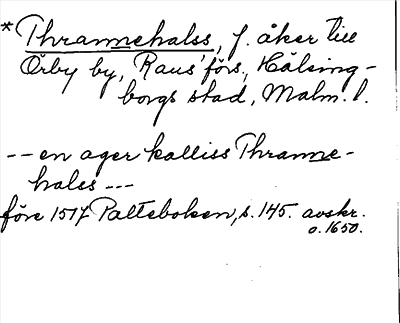 *Thrannehalss, f. åker till
Örby by, Raus förs., Hälsing-
borgs stad, Malm. l.
-- en ager kalliss Thranne-
halss ---
före 1517 Palteboken, s. 145. avskr.
o. 1650.